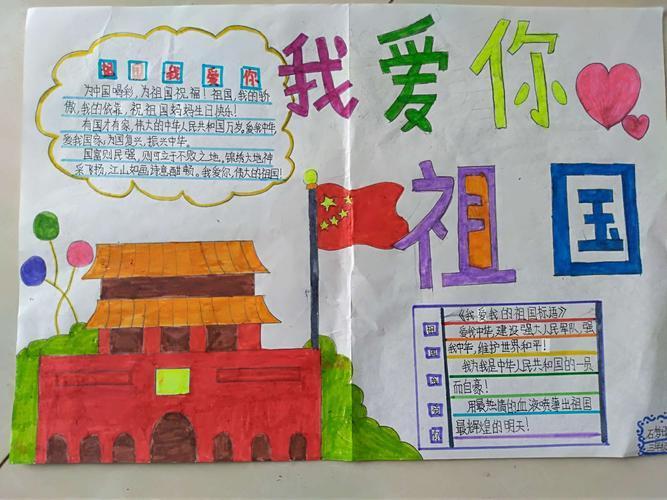 我爱你
祖国
祖国我爱你
为中国喝彩,为祖国祝福!祖国,我的骄
傲,我的依靠,祝祖国妈妈生日快乐!
有国才有家,伟大的中华人民共和国万岁,爱我中华,
爱我国家,为国复兴,振兴中华。
国富则民强,则可立于不败之地,锦绣大地神
采飞扬,江山如画诗意酣畅。我爱你,伟大的祖国!
《我爱我的祖国标语》
爱我中华,建设强大人民军队,强
我中华,维护世界和平!
我为我是中华人民共和国的一员
而自豪!
用最热情的血液喷薄出祖国
最辉煌的明天!
祖
国
我
爱
你